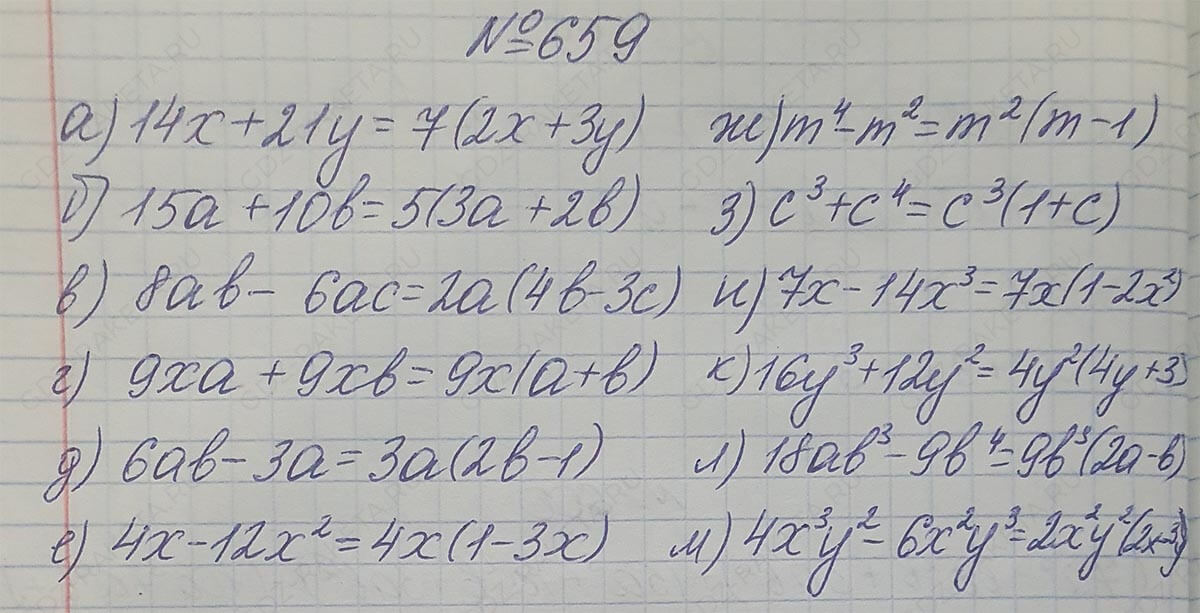 №659
а) 14x + 21y = 7(2x + 3y)
б) 15a + 10b = 5(3a + 2b)
в) 8ab - 6ac = 2a(4b - 3c)
г) 9xa + 9xb = 9x(a + b)
д) 6ab - 3a = 3a(2b - 1)
е) 4x - 12x² = 4x(1 - 3x)
ж) m⁴ - m² = m²(m - 1)
з) c³ + c⁴ = c³(1 + c)
и) 7x - 14x³ = 7x(1 - 2x²)
к) 16y³ + 12y² = 4y²(4y + 3)
л) 18ab³ - 9b⁴ = 9b³(2a - b)
м) 4x³y² - 6x²y³ = 2x²y²(2x - 3y)
GDZ-RAKETA.RU